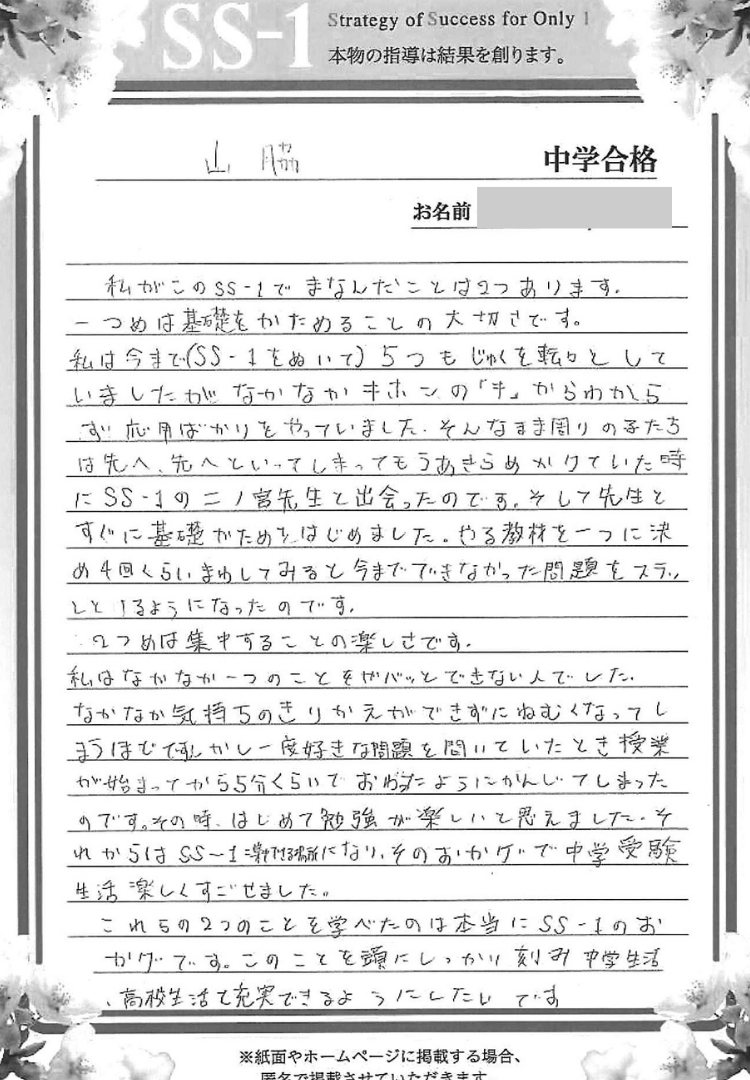 SS-1
Strategy of Success for Only 1
本物の指導は結果を創ります。
山脇
中学合格
お名前
私がこのSS-1でまなんだことは2つあります。
一つめは基礎をかためることの大切さです。
私は今まで(SS-1をぬいて)5つもじゅくを転々として
いましたがなかなかキホンの「キ」からわから
ず応用ばかりをやっていました。そんなまま周りの子たち
は先へ、先へといってしまってもうあきらめかけていた時
にSS-1の二ノ宮先生と出会ったのです。そして先生と
すぐに基礎がためをはじめました。やる教材を一つに決
め4回くらいまわしてみると今までできなかった問題をスラッ
ととけるようになったのです。
2つめは集中することの楽しさです。
私はなかなか一つのことをガバッとできない人でした。
なかなか気持ちのきりかえができずにねむくなってし
まうほどです。しかし一度好きな問題を問いていたとき授業
が始まってから5分くらいでおわったようにかんじてしまった
のです。その時、はじめて勉強が楽しいと思えました。そ
れからはSS-1楽しい場所になり、そのおかげで中学受験
生活楽しくすごせました。
これらの2つのことを学べたのは本当にSS-1のお
かげです。このことを頭にしっかり刻み中学生活
、高校生活も充実できるようにしたいです
※紙面やホームページに掲載する場合、
匿名で掲載させていただきます。